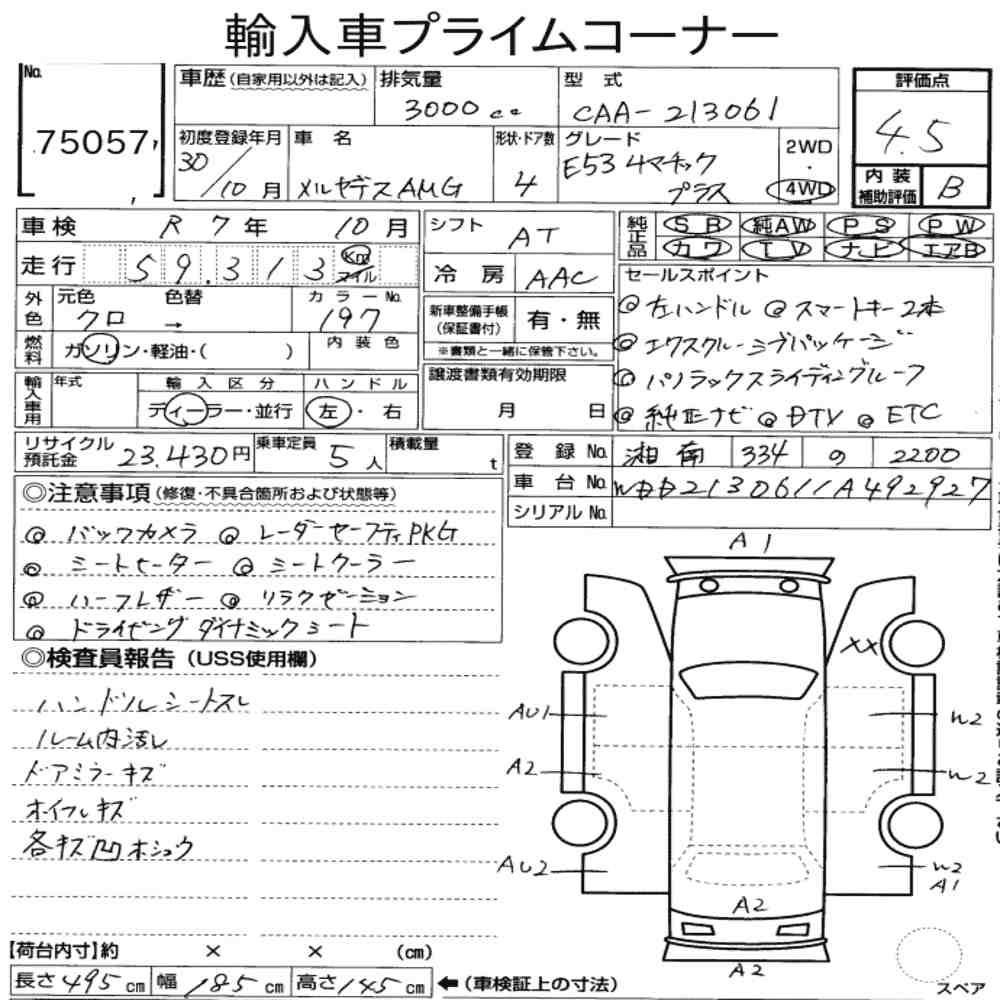 輸入車プライムコーナー
No.
75057
車歴(自家用以外は記入) 排気量 3000cc 型式 CAA-213061
評価点 4.5
初度登録年月 30/10月 車名 メルセデスAMG 形状・ドア数 4 グレード E53 4マチックプラス 2WD・4WD
内装補助評価 B
車検 R7年 10月
走行 59.313 Km マイル
シフト AT
冷房 AAC
純正品 SR 純AW PS PW
カワ TV ナビ エアB
外色 元色 クロ 色替 → カラーNo. 197
燃料 ガソリン・軽油・( ) 内装色
新車整備手帳(保証書付) 有・無
※書類と一緒に保管下さい。
輸入車用 年式 輸入区分 ディーラー・並行 ハンドル 左・右
譲渡書類有効期限
月 日
セールスポイント
◎左ハンドル ◎スマートキー2本
◎エクスクルーシブパッケージ
◎パノラックスライディングルーフ
◎純正ナビ ◎DTV ◎ETC
リサイクル預託金 23.430円 乗車定員 5人 積載量 t
登録No. 湘南 334 の 2200
車台No. WDD2130611A492927
シリアルNo.
◎注意事項(修復・不具合箇所および状態等)
◎バックカメラ ◎レーダーセーフティPKG
◎シートヒーター ◎シートクーラー
◎ハーフレザー ◎リラクゼーション
◎ドライビングダイナミックシート
◎検査員報告(USS使用欄)
ハンドルシートスレ
ルーム内汚レ
ドアミラーキズ
ホイールキズ
各キズ凹ホシュウ
A1
XX
AU1
W2
A2
W2
AU2
W2
A1
A2
A2
スペア
【荷台内寸】約 × × (cm)
長さ495cm 幅185cm 高さ145cm ←(車検証上の寸法)